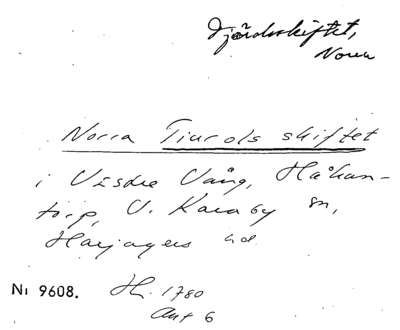 Tjärdsskiftet,
Norra
Norra Tiurols skiftet
i Västre Vång, Håkan-
torp, V. Karaby sn,
Harjagers hd
Nr 9608. Hn. 1780
Akt 6